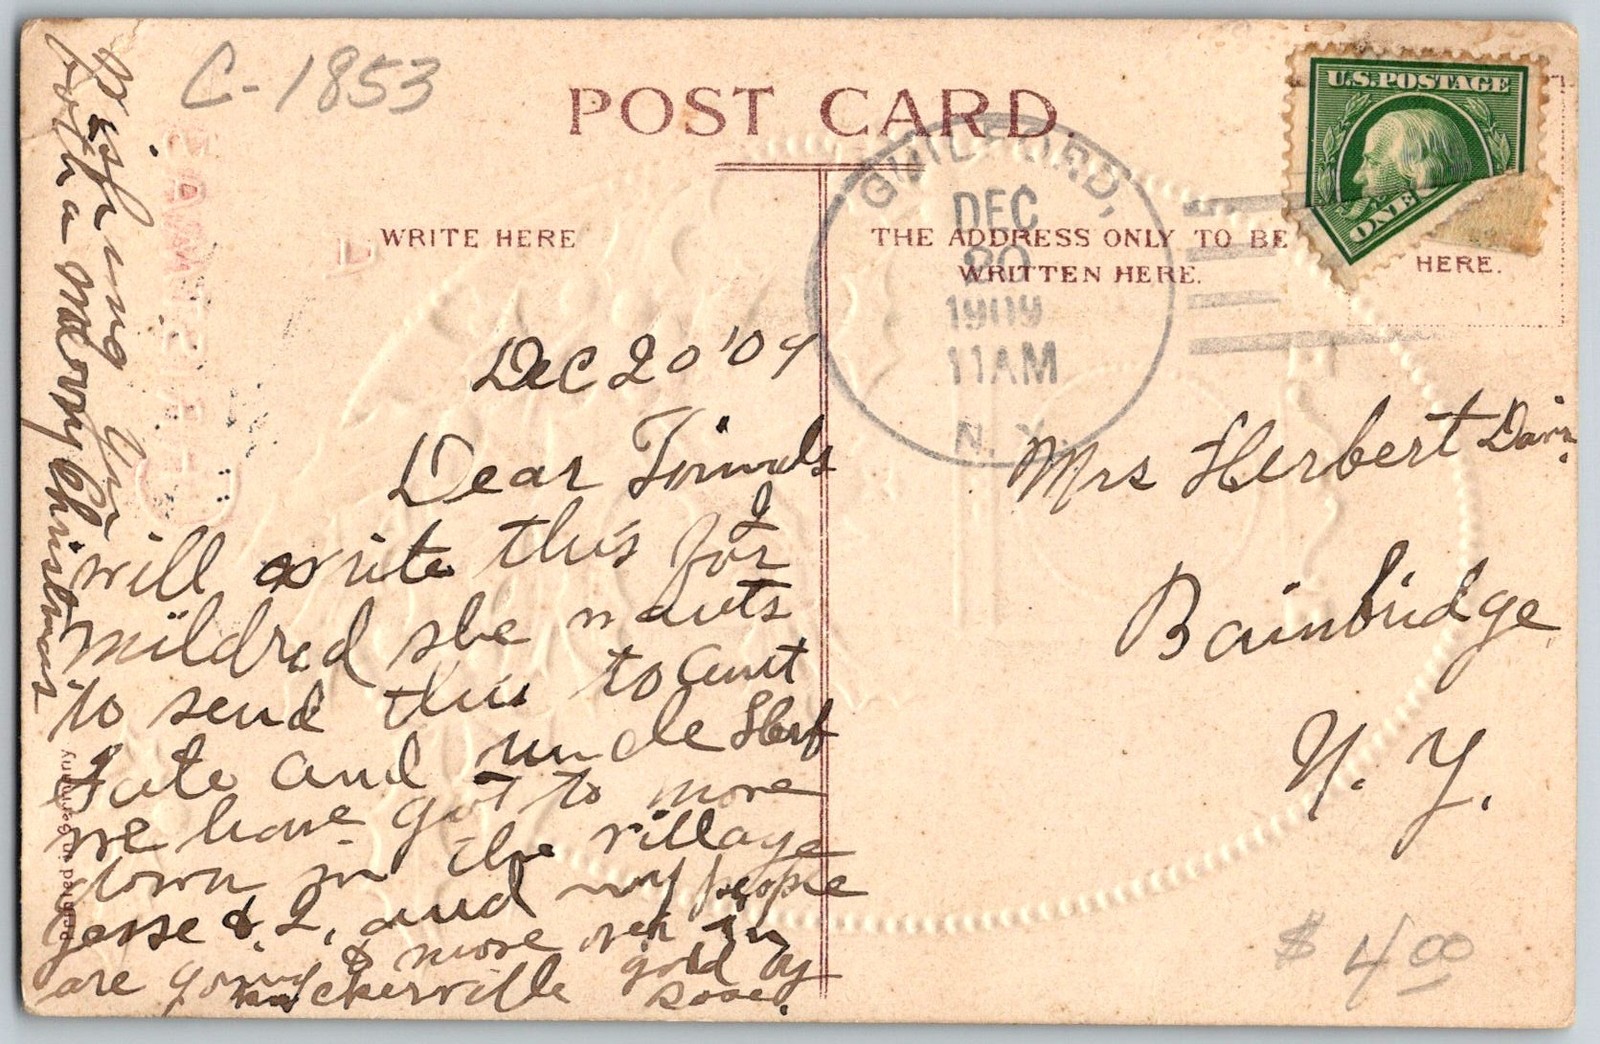 C-1853
POST CARD.
WRITE HERE
THE ADDRESS ONLY TO BE
WRITTEN HERE.
HERE.
U.S. POSTAGE
ONE
GUILFORD,
DEC
20
1909
11AM
N. Y.
Dec 20 '09
Dear Friends
I
will write this for
Mildred she wants
to send this to Aunt
and uncle Herb
we have got to move
down in the village
Jesse & I, and my people
are going to move over in
gold by
Wishing you
both a Merry Christmas
Mrs Herbert Davis.
Bainbridge
N. Y.
$ 4.00
Germany